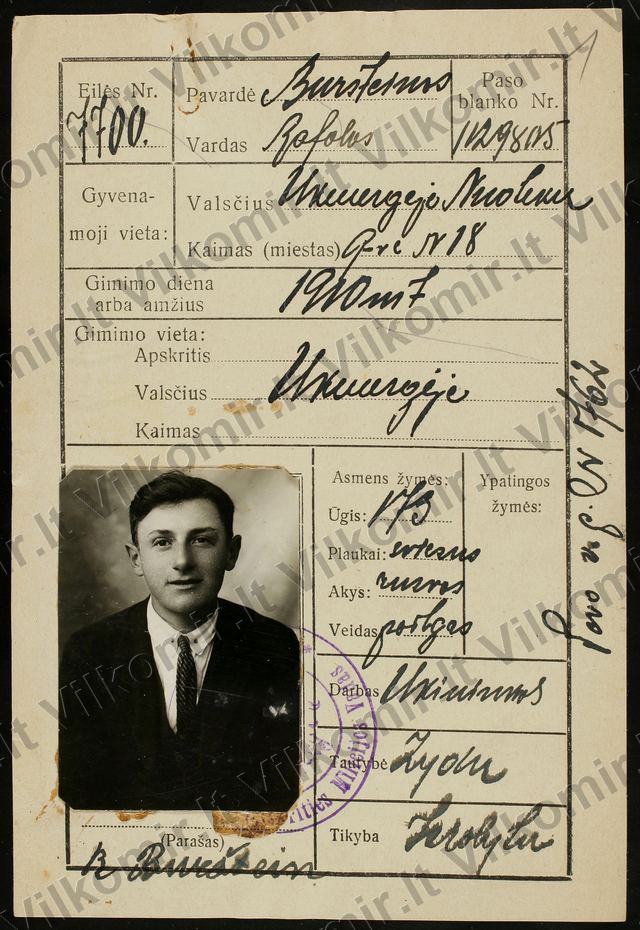 Eilės Nr.
7700.
Pavardė Buršteinas
Vardas Rafolas
Paso
blanko Nr.
1129805
Gyvena-
moji vieta:
Valsčius Ukmergėje
Kaimas (miestas) g-vė N 18
Gimimo diena
arba amžius
1910 m
Gimimo vieta:
Apskritis
Valsčius Ukmergėje
Kaimas
Asmens žymės:
Ūgis: 173
Plaukai:
Akys:
Veidas pailgas
Ypatingos
žymės:
Darbas Ūkininkas
Tautybė Žydų
Tikyba
(Parašas)
B Burštein
Milicijos Vadas
Vilkomir.lt